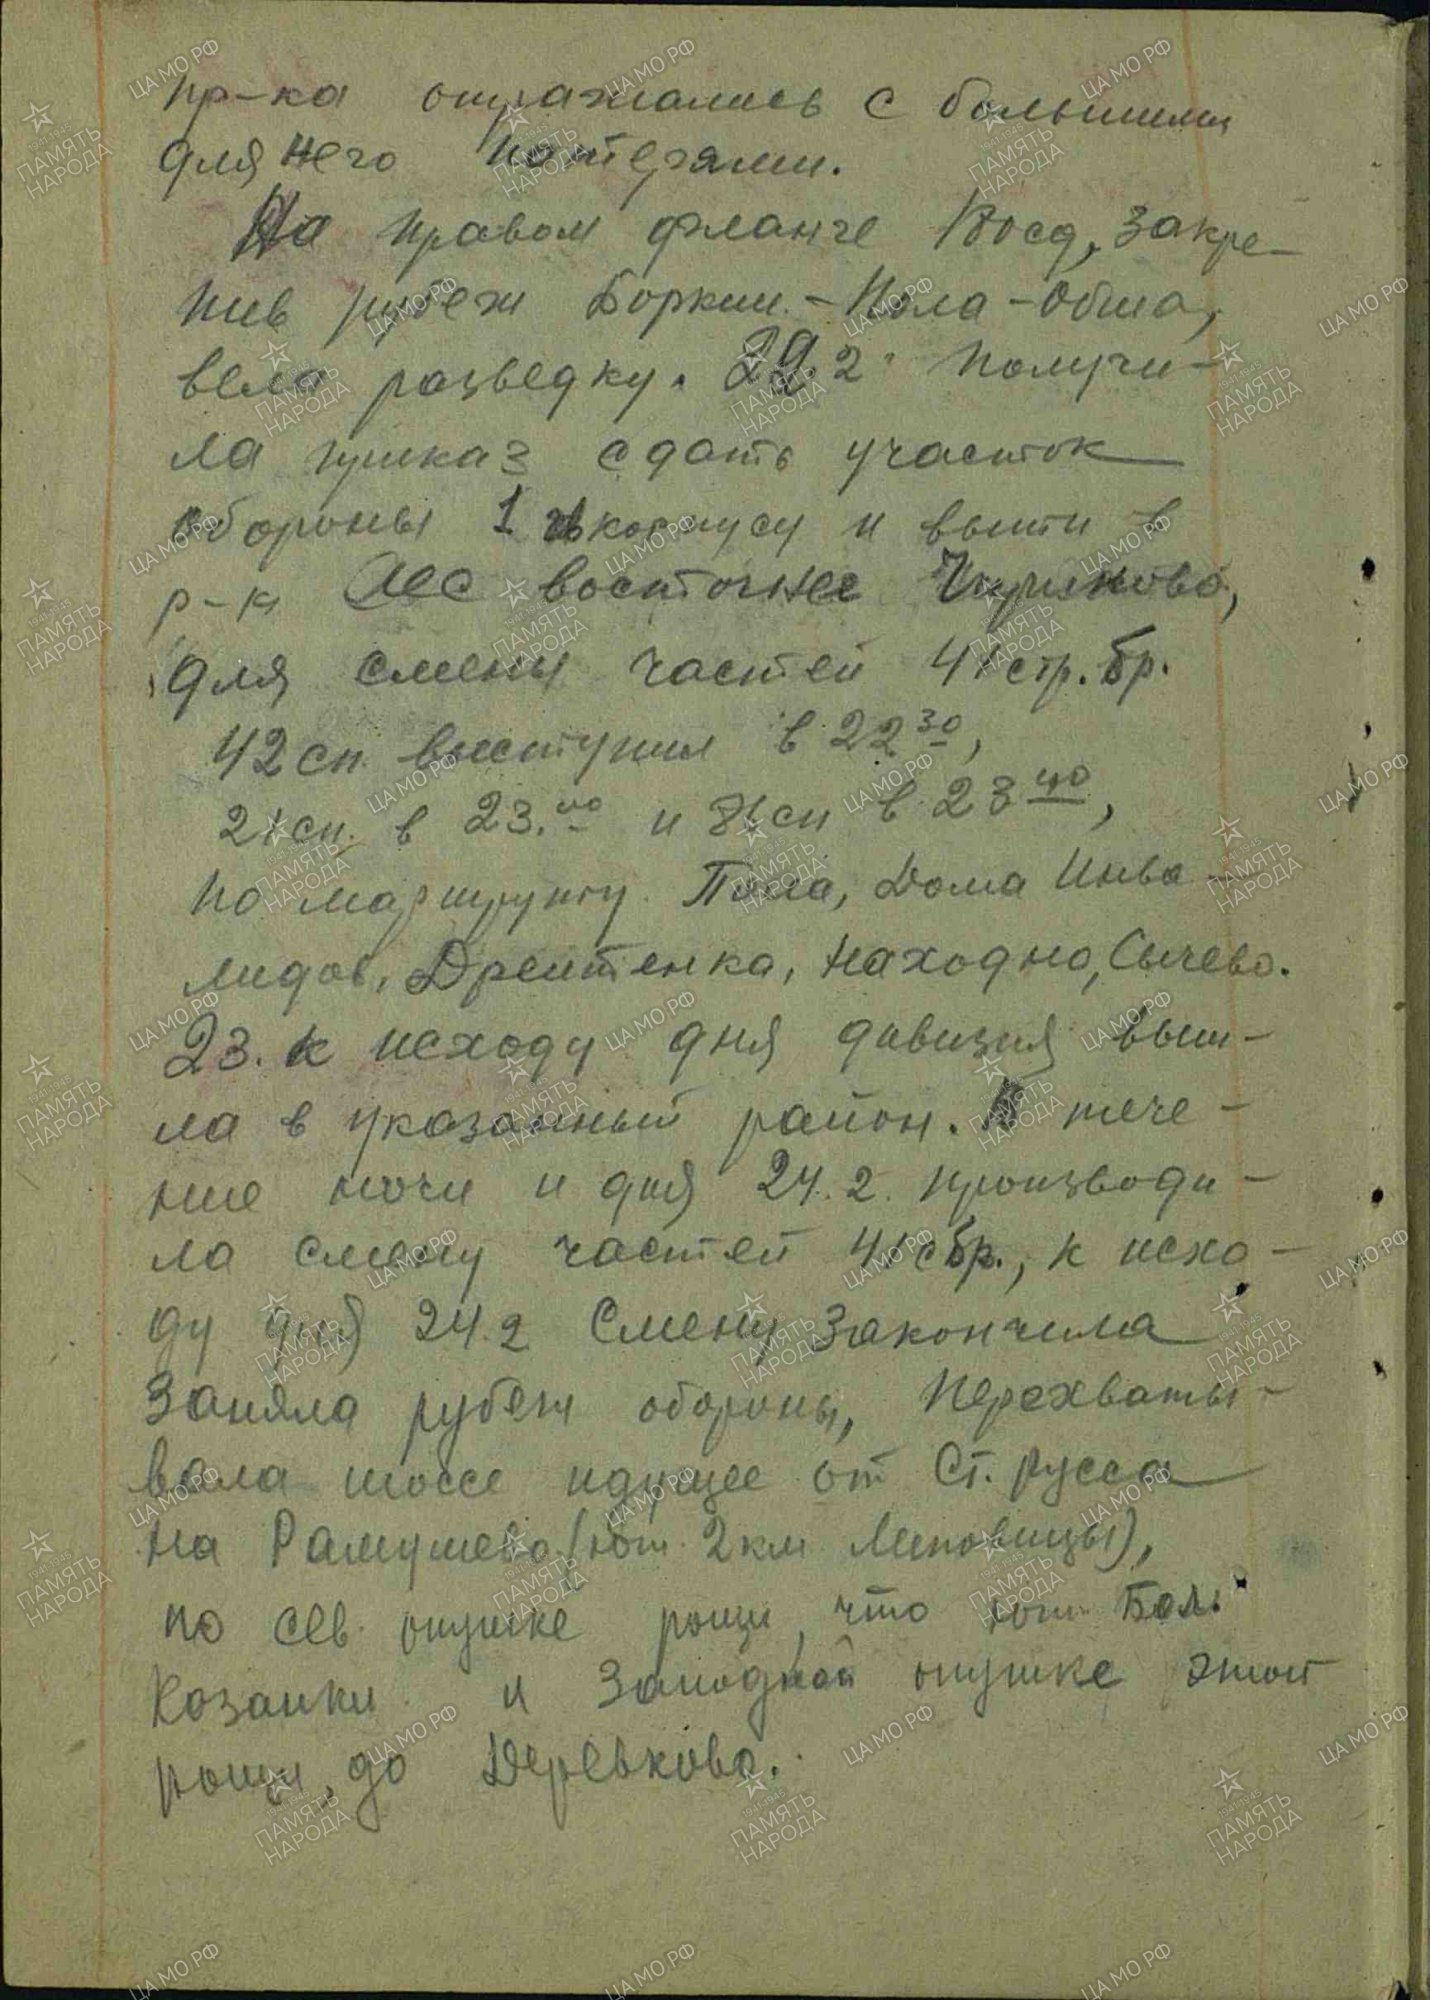 пр-ка отражались с большими
для него потерями.
На правом фланге 180сд, закре-
пив рубеж Боркии - Пола - Обша,
вела разведку. 22.2 получи-
ла приказ сдать участок
обороны 1 гв корпусу и выйти в
р-н лес восточнее
для смены частей 41 стр. бр.
42 сп. выступил в 22 30,
21 сп. в 23.00 и 86 сп в 23 40,
по маршруту Пола, Дома Инва-
лидов, Дрентенка, Находно, Сычево.
23. к исходу дня дивизия выш-
ла в указанный район. В тече-
ние ночи и дня 24.2. производи-
ла смену частей 41 сбр., к исхо-
ду дня 24.2 смену закончила
Заняла рубеж обороны, перехваты-
вала шоссе идущее от Ст. Русса
на Рамушево (юж. 2 км Липовицы),
по сев. опушке рощи, что юж. Бол.
Козанки и Западной опушке этой
рощи, до Деревково.
ЦАМО РФ
ПАМЯТЬ НАРОДА
1941-1945